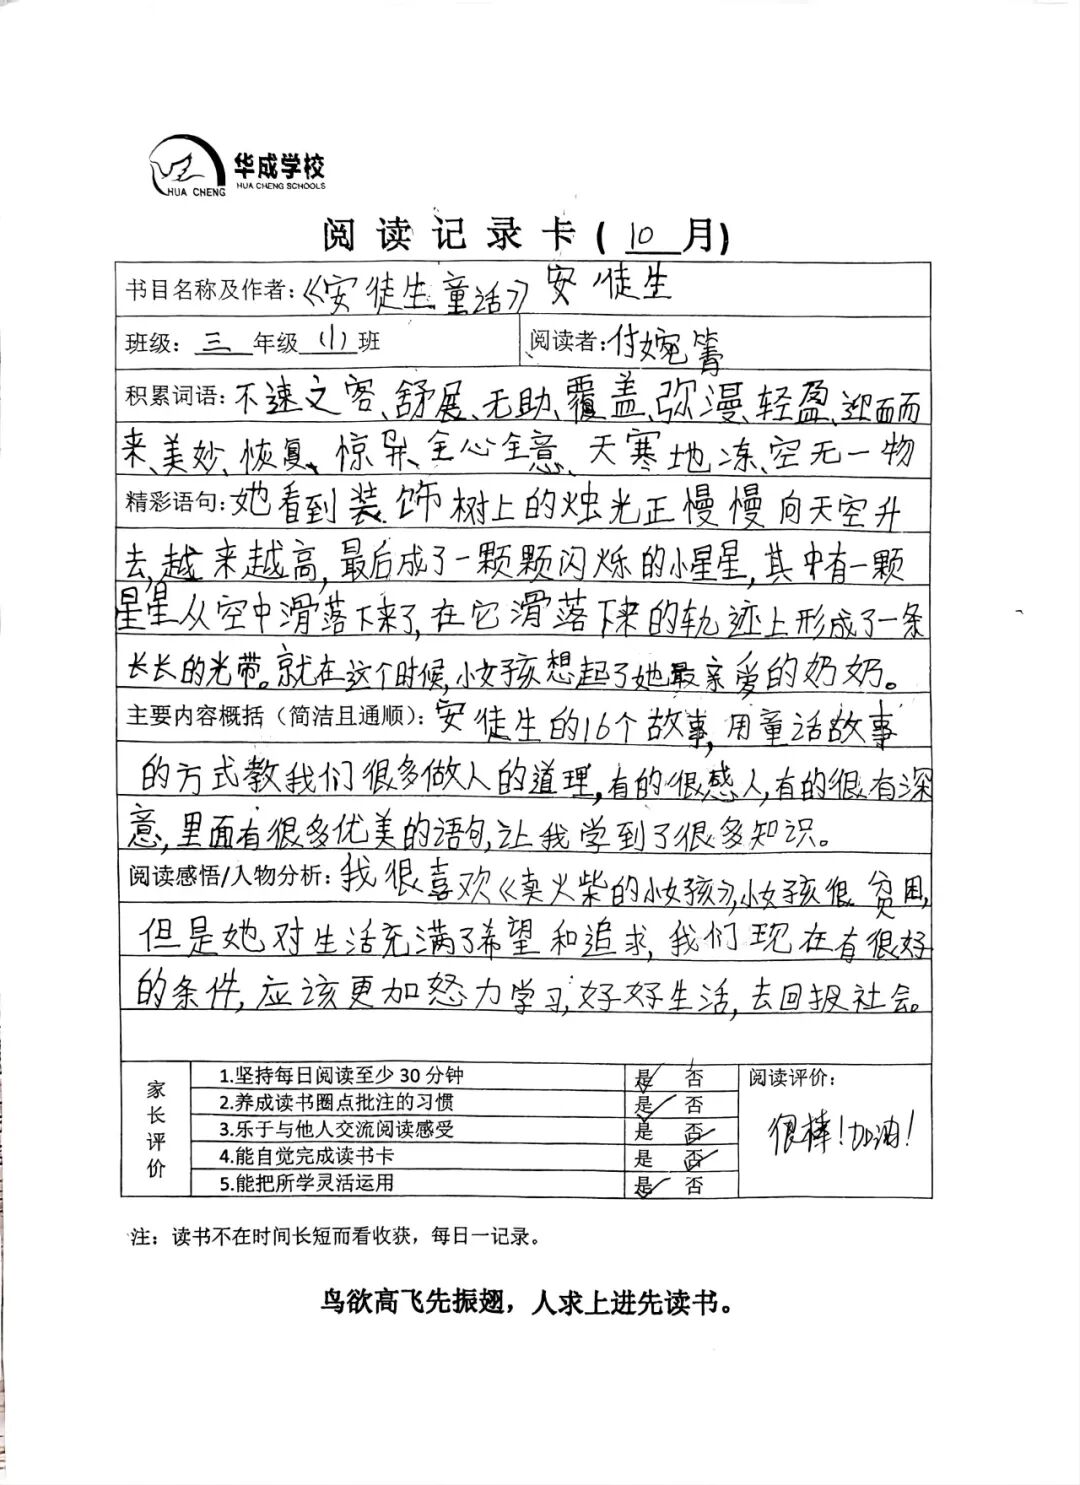 华成学校
HUA CHENG
HUA CHENG SCHOOLS
阅读记录卡(10月)
书目名称及作者:《安徒生童话》安徒生
班级:三年级(1)班 阅读者:付婉箐
积累词语:不速之客、舒展、无助、覆盖、弥漫、轻盈、迎面而
来、美妙、恢复、惊异、全心全意、天寒地冻、空无一物
精彩语句:她看到装饰树上的烛光正慢慢向天空升
去,越来越高,最后成了一颗颗闪烁的小星星,其中有一颗
星星从空中滑落下来了,在它滑落下来的轨迹上形成了一条
长长的光带。就在这个时候,小女孩想起了她最亲爱的奶奶。
主要内容概括(简洁且通顺):安徒生的16个故事,用童话故事
的方式教我们很多做人的道理,有的很感人,有的很有深
意,里面有很多优美的语句,让我学到了很多知识。
阅读感悟/人物分析:我很喜欢《卖火柴的小女孩》,小女孩很贫困,
但是她对生活充满了希望和追求,我们现在有很好
的条件,应该更加努力学习,好好生活,去回报社会。
家长评价
1.坚持每日阅读至少30分钟 是 否
2.养成读书圈点批注的习惯 是 否
3.乐于与他人交流阅读感受 是 否
4.能自觉完成读书卡 是 否
5.能把所学灵活运用 是 否
阅读评价:
很棒!加油!
注:读书不在时间长短而看收获,每日一记录。
鸟欲高飞先振翅,人求上进先读书。